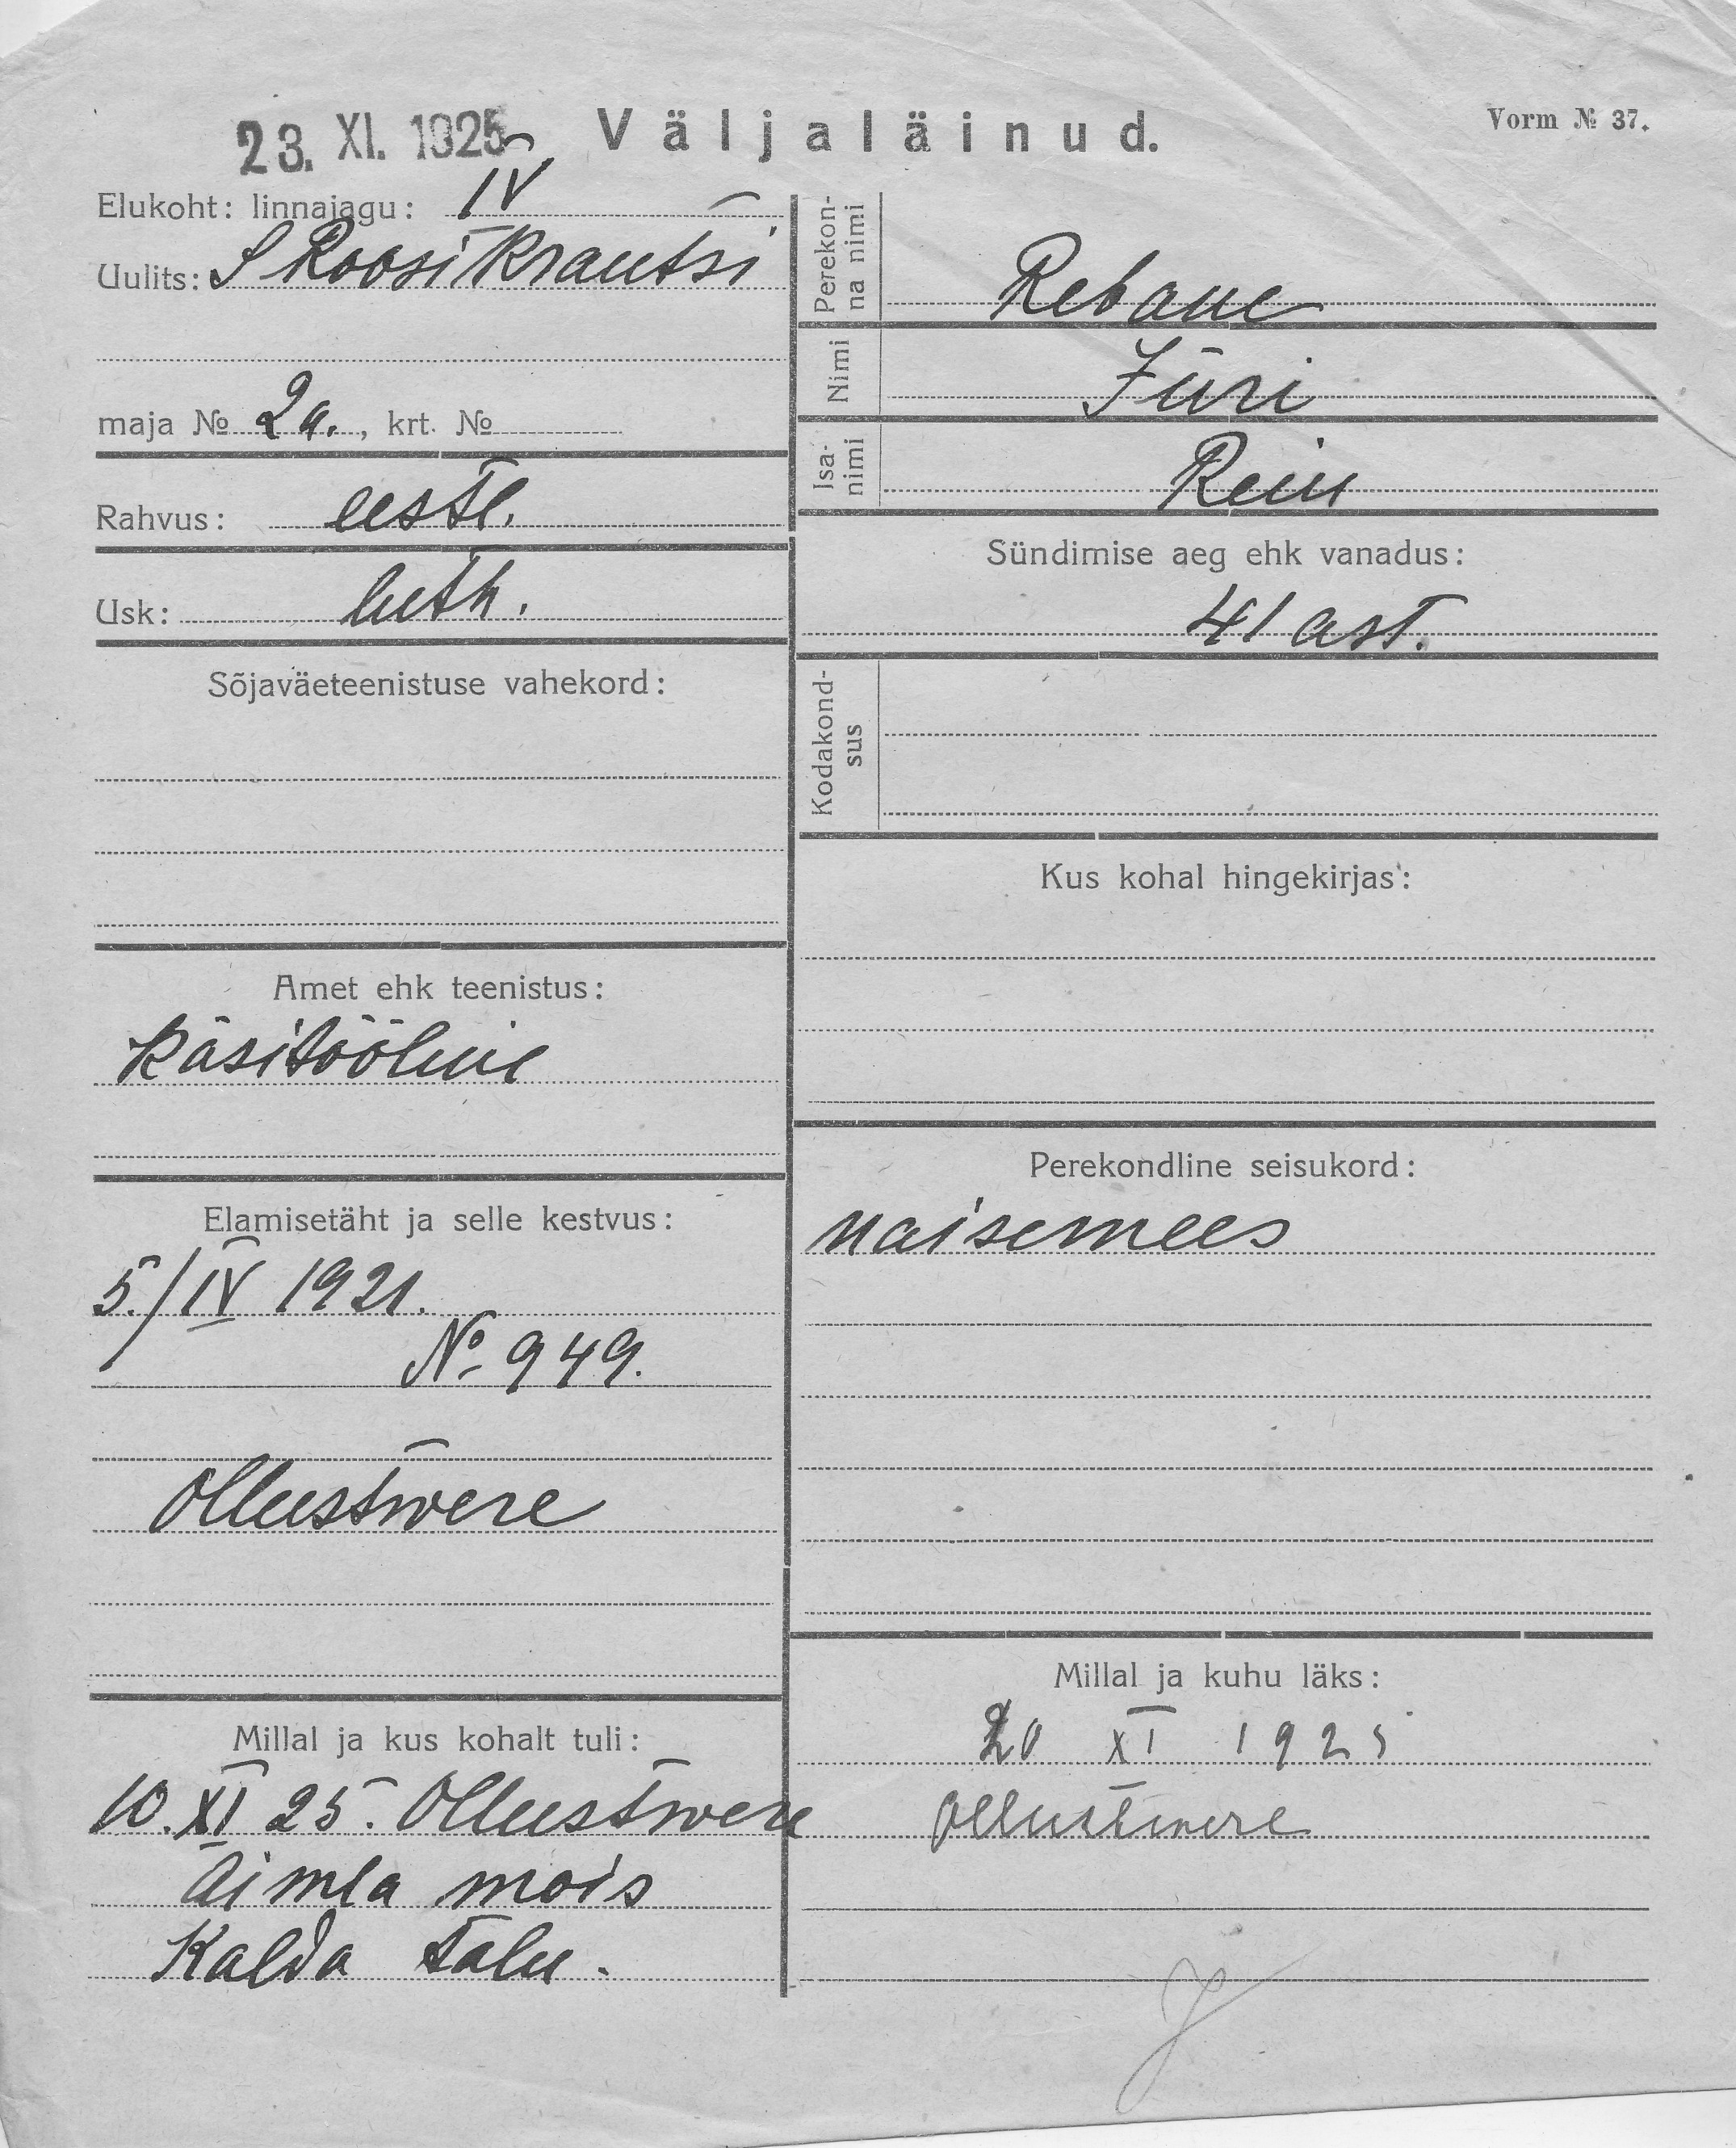 23. XI. 1925
Väljaläinud.
Vorm № 37.
Elukoht: linnajagu: IV
Uulits: S Roosikrantsi
maja № 2a., krt. №
Rahvus: eestl.
Usk: luth.
Sõjaväeteenistuse vahekord:
Amet ehk teenistus:
Käsitööline
Elamisetäht ja selle kestvus:
5./IV 1921.
№ 949.
Ollustwere
Millal ja kus kohalt tuli:
10. XI 25. Ollustwere
Aimla mois
Kalda talu.
Perekon-
na nimi
Rebane
Nimi Jüri
Isa-
nimi
Rein
Sündimise aeg ehk vanadus:
41 ast.
Kodakond-
sus
Kus kohal hingekirjas:
Perekondline seisukord:
naisemees
Millal ja kuhu läks:
20 XI 1925
Ollustwere